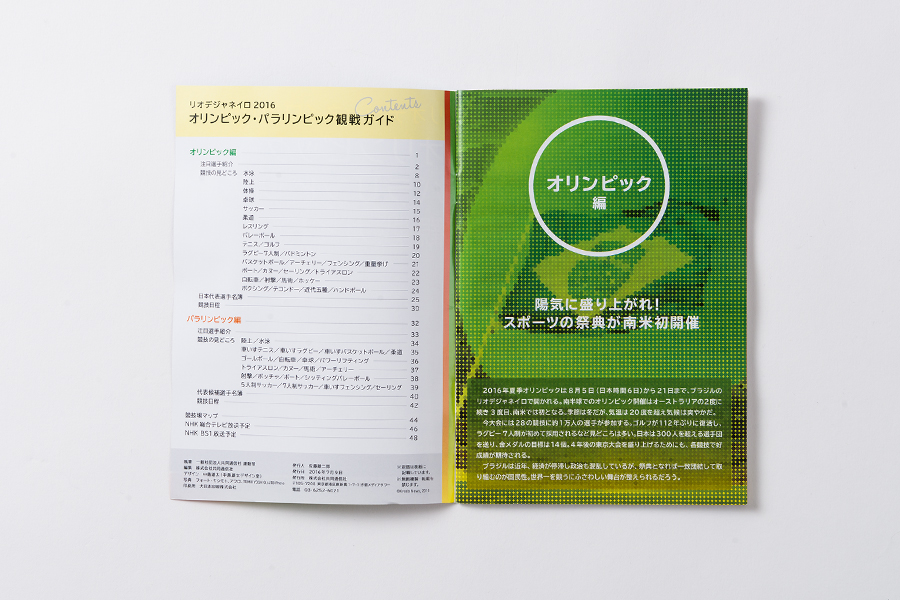 リオデジャネイロ 2016
Contents
オリンピック・パラリンピック観戦ガイド
オリンピック編 1
注目選手紹介 2
競技の見どころ 水泳 8
陸上 10
体操 12
卓球 14
サッカー 15
柔道 16
レスリング 17
バレーボール 18
テニス／ゴルフ 19
ラグビー7人制／バドミントン 20
バスケットボール／アーチェリー／フェンシング／重量挙げ 21
ボート／カヌー／セーリング／トライアスロン 22
自転車／射撃／馬術／ホッケー 23
ボクシング／テコンドー／近代五種／ハンドボール 24
日本代表選手名簿 25
競技日程 30
パラリンピック編 32
注目選手紹介 33
競技の見どころ 陸上／水泳 34
車いすテニス／車いすラグビー／車いすバスケットボール／柔道 35
ゴールボール／自転車／卓球／パワーリフティング 36
トライアスロン／カヌー／馬術／アーチェリー 37
射撃／ボッチャ／ボート／シッティングバレーボール 38
5人制サッカー／7人制サッカー／車いすフェンシング／セーリング 39
代表候補選手名簿 40
競技日程 42
競技場マップ 44
NHK 総合テレビ放送予定 46
NHK BS1 放送予定 48
執筆 一般社団法人共同通信社 運動部
編集 株式会社共同通信社
印刷所 大日本印刷株式会社
発行人 佐藤雄二郎
発行日 2016年7月9日
発行所 株式会社共同通信社
電話 03-6252-6021
オリンピック
編
陽気に盛り上がれ！
スポーツの祭典が南米初開催
2016年夏季オリンピックは8月5日（日本時間6日）から21日まで、ブラジルの
リオデジャネイロで開かれる。南半球でのオリンピック開催はオーストラリアの2度に
続き3度目、南米では初となる。季節は冬だが、気温は20度を超え気候は爽やかだ。
今大会には28の競技に約1万人の選手が参加する。ゴルフが112年ぶりに復活し、
ラグビー7人制が初めて採用されるなど見どころは多い。日本は300人を超える選手団
を送り、金メダルの目標は14個。4年後の東京大会を盛り上げるためにも、各競技で好
成績が期待される。
ブラジルは近年、経済が停滞し政治も混乱しているが、祭典となれば一致団結して取
り組むのが国民性。世界一を競うにふさわしい舞台が整えられるだろう。